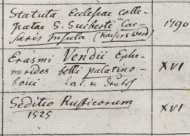 Statuta Ecclesiae colle-
giatae S. Suiberti Cae-
saris Insula (Kaiserswerd) 1790
Erasmi Vendii Ephe-
merides belli palatino-
boici XVI
Seditio Rusticorum
1525 XVI